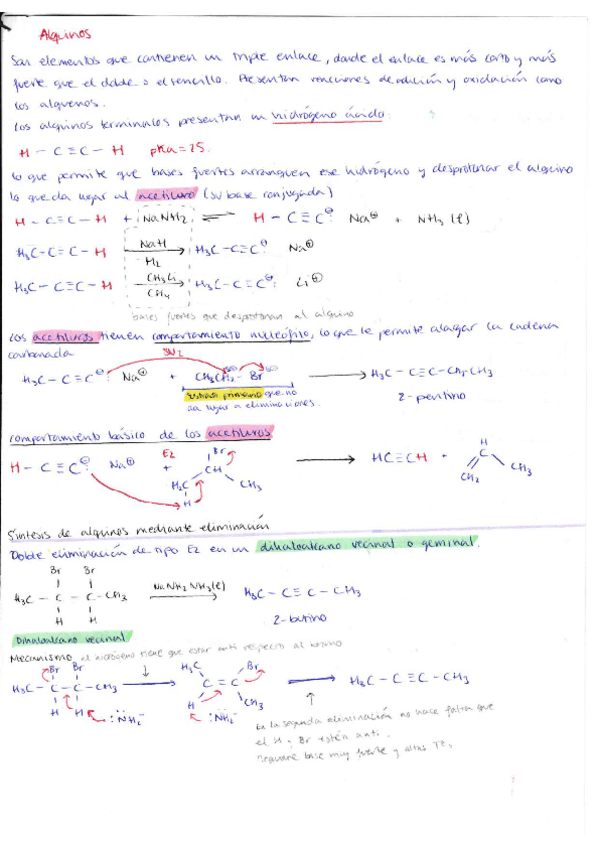 Alquinos
Son elementos que contienen un triple enlace, donde el enlace es más corto y más
fuerte que el doble o el sencillo. Presentan reacciones de adición y oxidación como
los alquenos.
Los alquinos terminales presentan un hidrógeno ácido.
H - C ≡ C - H pKa = 25.
lo que permite que bases fuertes arranquen ese hidrógeno y desprotonar el alquino
lo que da lugar al acetiluro (su base conjugada)
H - C ≡ C - H + NaNH2 ⇌ H - C ≡ C:⊖ Na⊕ + NH3 (l)
H3C - C ≡ C - H NaH H2 → H3C - C ≡ C:⊖ Na⊕
H3C - C ≡ C - H CH3Li CH4 → H3C - C ≡ C:⊖ Li⊕
bases fuertes que desprotonan al alquino
Los acetiluros tienen comportamiento nucleófilo, lo que le permite alargar la cadena
carbonada SN2
H3C - C ≡ C:⊖ Na⊕ + CH3CH2 - Br → H3C - C ≡ C - CH2 - CH3
sustrato primario que no 2-pentino
da lugar a eliminaciones.
comportamiento básico de los acetiluros
H - C ≡ C:⊖ Na⊕ E2 + Br CH H3C CH3 H → HC ≡ CH + H C CH2 CH3
Síntesis de alquinos mediante eliminación
Doble eliminación de tipo E2 en un dihaloalcano vecinal o geminal.
Br Br
H3C - C - C - CH3 NaNH2 NH3(l) → H3C - C ≡ C - CH3
H H 2-butino
Dihaloalcano vecinal
Mecanismo el hidrógeno tiene que estar anti respecto al bromo
Br Br H3C Br
H3C - C - C - CH3 → C = C → H3C - C ≡ C - CH3
H H :NH2⁻ H CH3 :NH2⁻
En la segunda eliminación no hace falta que
el H y Br estén anti.
Requiere base muy fuerte y altas Tª,